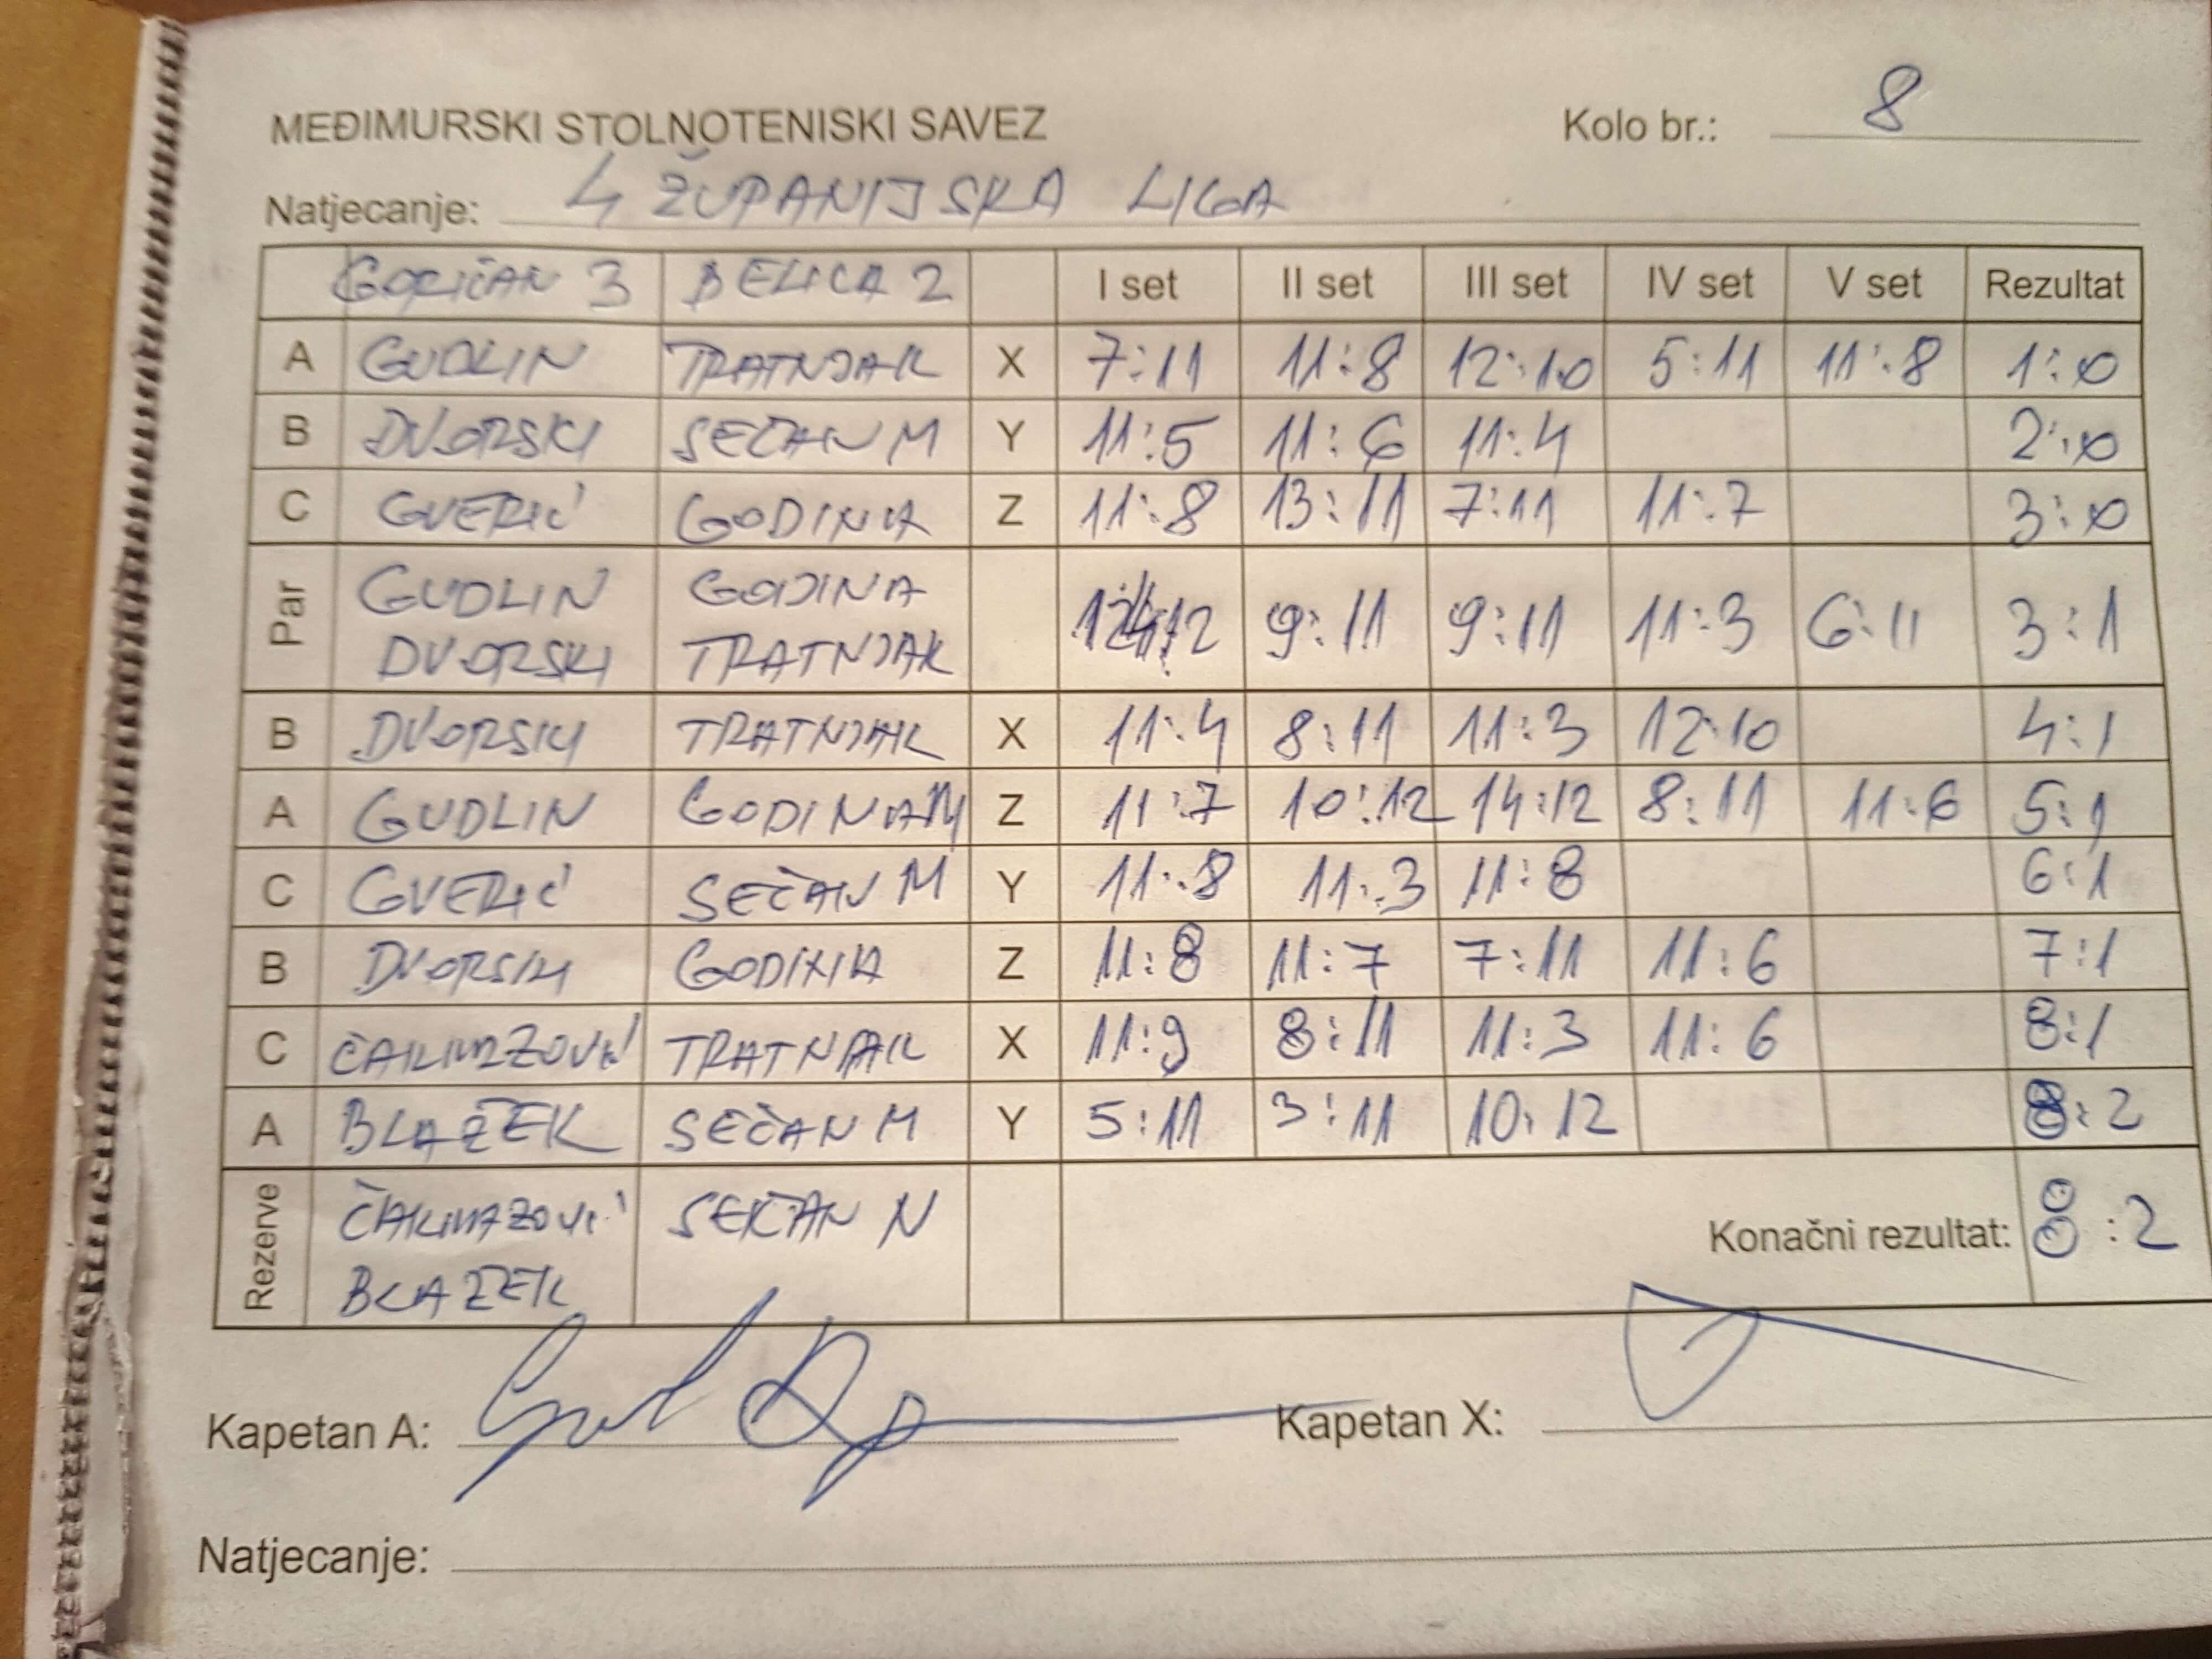 MEĐIMURSKI STOLNOTENISKI SAVEZ Kolo br.: 8
Natjecanje: 4 ŽUPANIJSKA LIGA
GORIČAN 3 BELICA 2 I set II set III set IV set V set Rezultat
A GUDLIN TRATNJAK X 7:11 11:8 12:10 5:11 11:8 1:0
B DVORSKI SEČAN M Y 11:5 11:6 11:4 2:0
C GVERIĆ GODINA Z 11:8 13:11 7:11 11:7 3:0
Par GUDLIN GODINA
DVORSKI TRATNJAK 9:11 9:11 11:3 6:11 3:1
B DVORSKI TRATNJAK X 11:4 8:11 11:3 12:10 4:1
A GUDLIN GODINA M Z 11:7 10:12 14:12 8:11 11:6 5:1
C GVERIĆ SEČAN M Y 11:8 11:3 11:8 6:1
B DVORSKI GODINA Z 11:8 11:7 7:11 11:6 7:1
C TRATNJAK X 11:9 8:11 11:3 11:6 8:1
A BLAŽEK SEČAN M Y 5:11 3:11 10:12 8:2
Rezerve SEČAN N Konačni rezultat: 8:2
BLAŽEK
Kapetan A: Kapetan X:
Natjecanje: